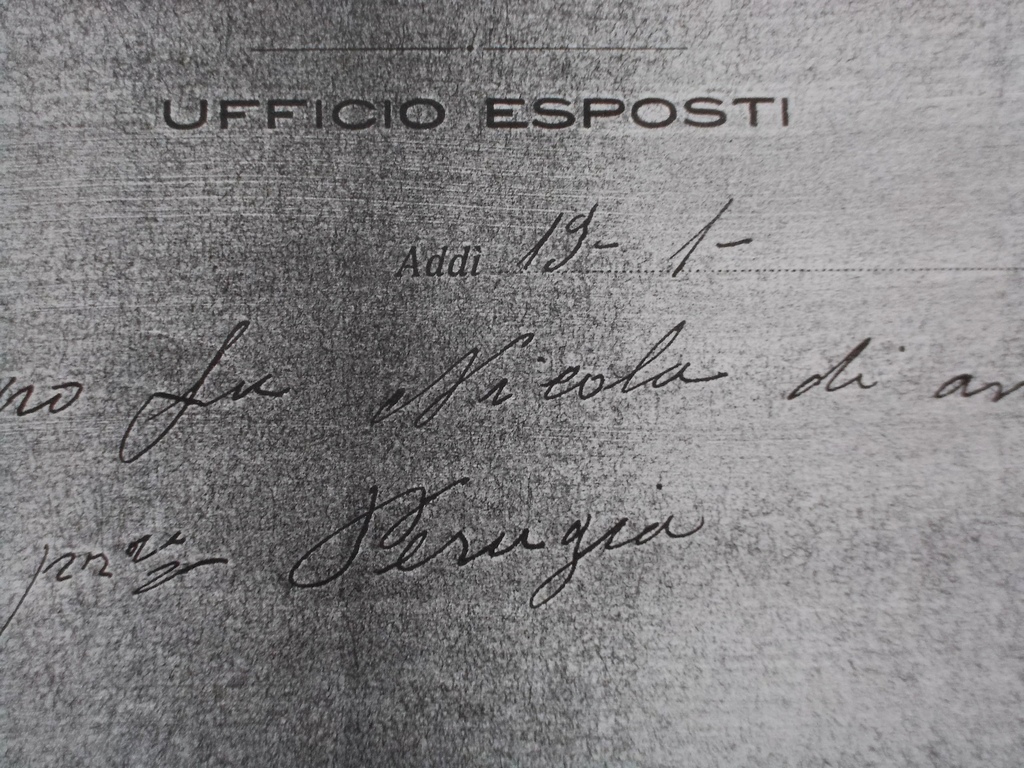 UFFICIO ESPOSTI
Addì 19- 1-
no fu Nicola di an
Perugia